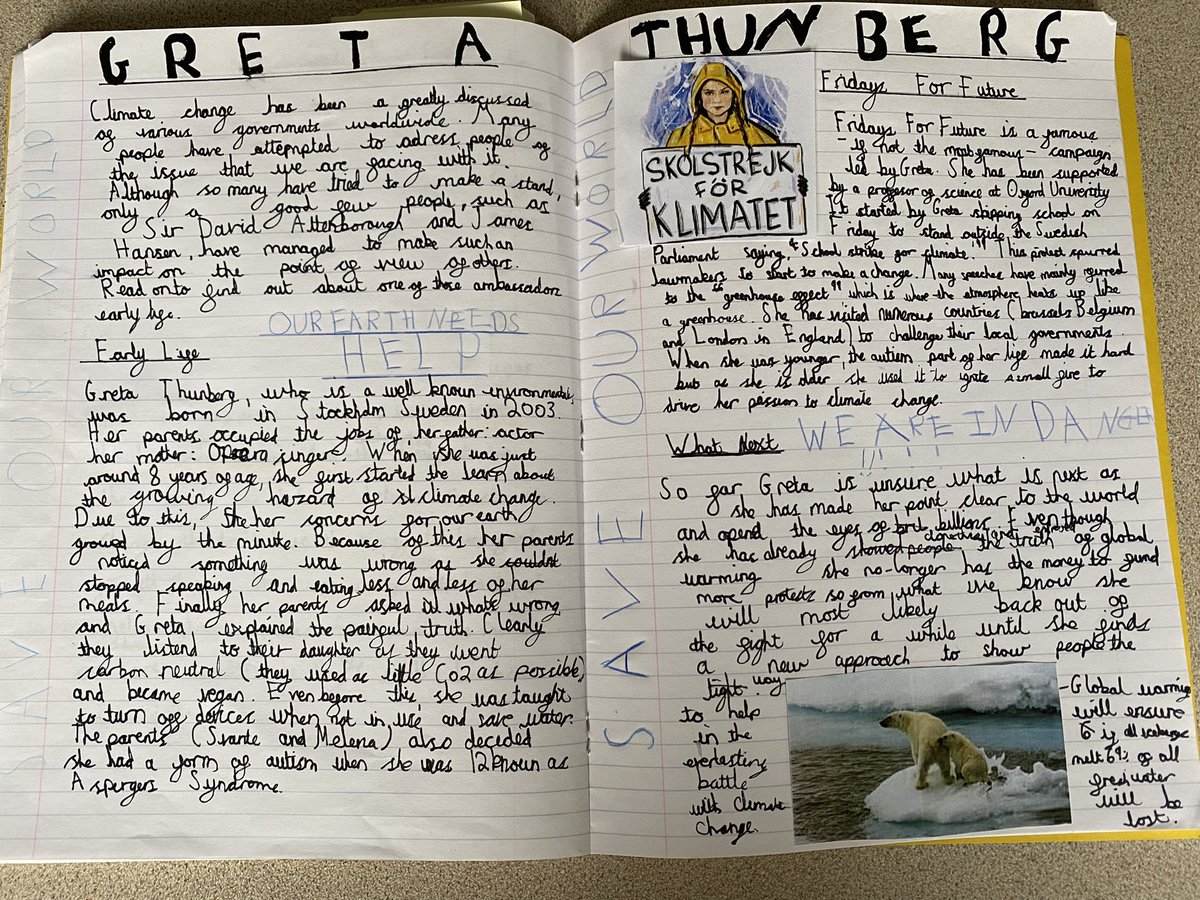 GRETA THUNBERG
SAVE OUR WORLD
Climate change has been a greatly discussed
of various governments worldwide. Many
people have attempted to adress people of
the issue that we are facing with it.
Although so many have tried to make a stand,
only a good few people, such as
Sir David Attenborough and James
Hansen, have managed to make such an
impact on the point of view of others.
Read on to find out about one of those ambassadors
early life.
OUR EARTH NEEDS
HELP
Early Life
Greta Thunberg, who is a well known
was born in Stockholm Sweden in 2003.
Her parents occupied the jobs of her father: actor
her mother: singer. When she was just
around 8 years of age, she first started the learn about
the growing harzard of climate change.
Due to this, her concerns for our earth
by the minute. Because of this her parents
noticed something was wrong as she couldnt
stopped speaking and eating less and less of her
meals. Finally her parents asked whats wrong
and Greta explained the painful truth. Clearly
they listend to their daughter as they went
carbon neutral (they used as little Co2 as possible)
and became vegan. Even before this, she was taught
to turn off devices when not in use and save water.
The parents (Svante and Melena) also decided
she had a form of autism when she was 12 known as
Aspergers Syndrome.
SAVE OUR WORLD
SKOLSTREJK
FÖR
KLIMATET
Fridays For Future
Fridays For Future is a famous
- if not the most famous - campaign
led by Greta. She has been supported
by a professor of science at Oxford University
It started by Greta skipping school on
Friday to stand outside the Swedish
Parliament saying, "School strike for climate." This protest spurred
lawmakers to start to make a change. Many speeches have mainly
to the "greenhouse effect" which is where the atmosphere heats up like
a greenhouse. She has visited numerous countries (brussels Belgium
and London in England) to challenge their local governments.
When she was younger, the autism part of her life made it hard
but as she is older she used it to a small fire to
drive her passion to climate change.
WE ARE IN DANGER
!!!!
What Next
So far Greta is unsure what is next as
she has made her point clear to the world
and opend the eyes of billions. Even though
she has already showed people the truth of global
warming she no-longer has the money to fund
more protests so from what ive know she
will most likely back out of
the fight for a while until she finds
a new approach to show people the
right way
to help
in the
everlasting
battle
with climate
change.
-Global warming
will ensure
if all icebergs
melt 69% of all
freshwater
will be
lost.